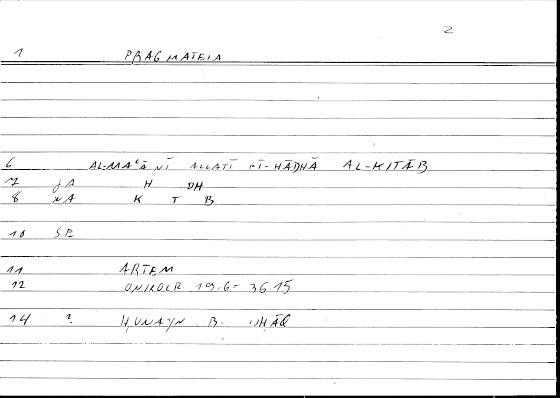 2
1 PRAGMATEIA
6 AL-MAʿĀNĪ ALLATĪ FĪ-HĀDHĀ AL-KITĀB
7 JA H DH
8 NA K T B
10 SE
11 ARTEM
12 ONIROCR 19.6-36.15
14 ? ḤUNAYN B. ISḤĀQ